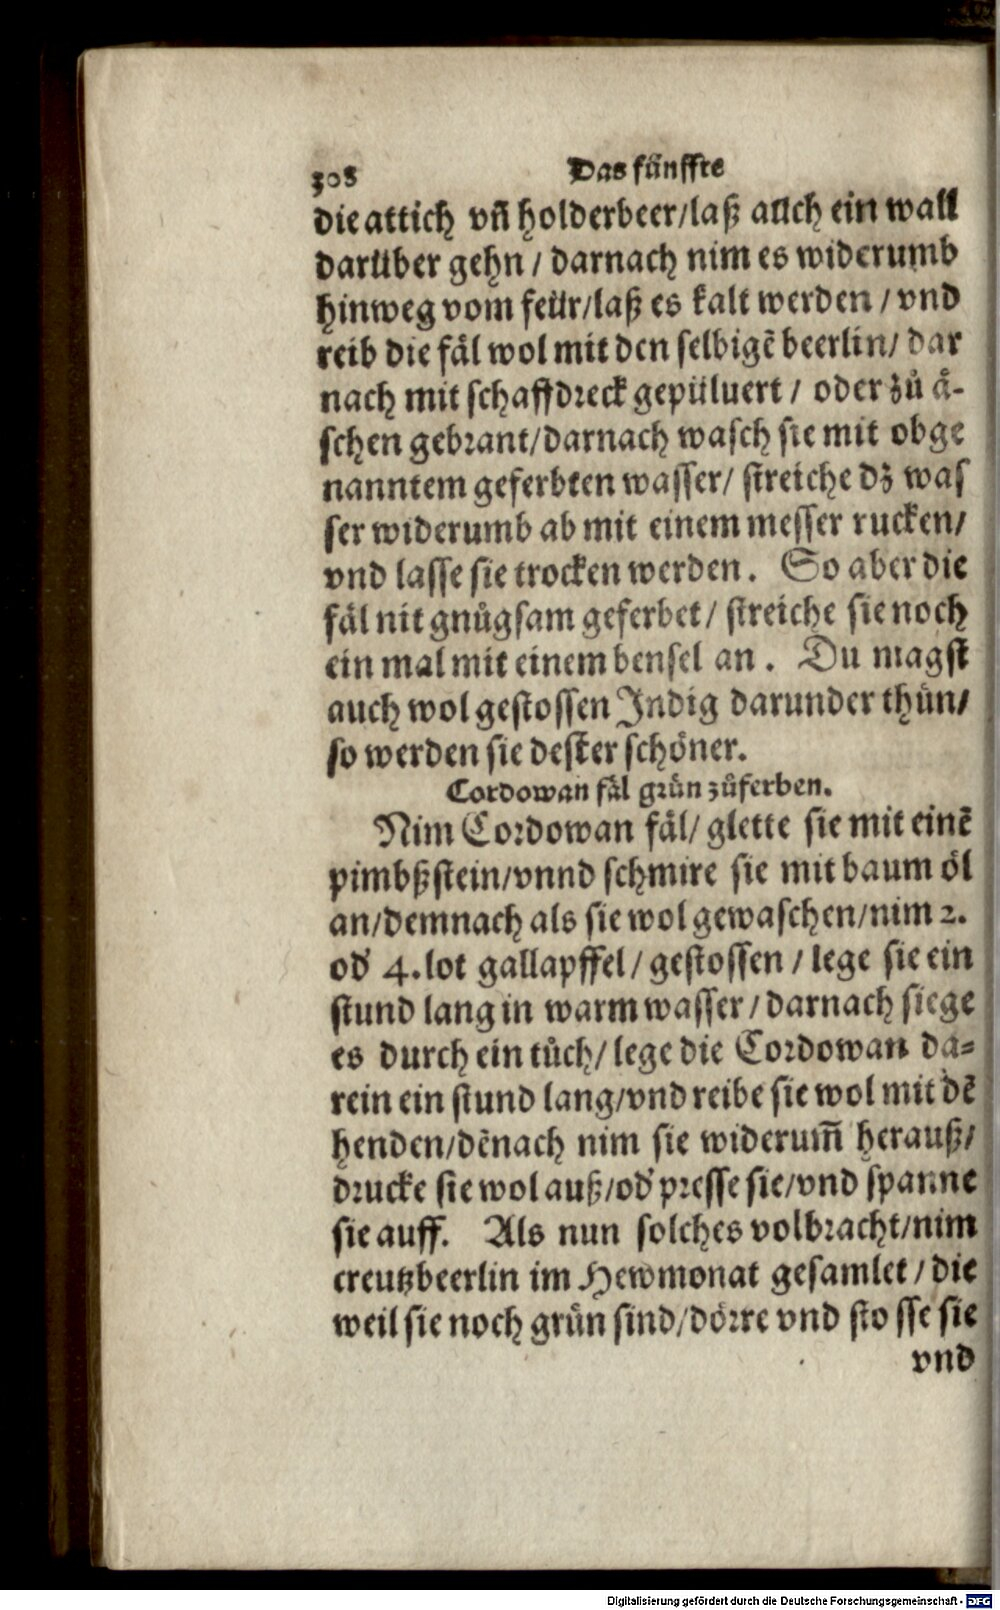 308 Das fünffte
die attich vñ holderbeer/laß auch ein wall
darüber gehn / darnach nim es widerumb
hinweg vom feür/laß es kalt werden / vnd
reib die fäl wol mit den selbigẽ beerlin/ dar
nach mit schaffdreck gepüluert / oder zů ä-
schen gebrant/darnach wasch sie mit obge
nanntem geferbten wasser/ streiche dz was
ser widerumb ab mit einem messer rucken/
vnd lasse sie trocken werden. So aber die
fäl nit gnůgsam geferbet / streiche sie noch
ein mal mit einem bensel an. Du magst
auch wol gestossen Indig darunder thůn/
so werden sie dester schöner.
Cordowan fäl grün zůferben.
Nim Cordowan fäl/ glette sie mit einẽ
pimbßstein/vnnd schmire sie mit baum öl
an/demnach als sie wol gewaschen/nim 2.
od' 4. lot gallapffel / gestossen / lege sie ein
stund lang in warm wasser / darnach siege
es durch ein tůch/ lege die Cordowan da=
rein ein stund lang/vnd reibe sie wol mit dẽ
henden/dẽnach nim sie widerum̃ herauß/
drucke sie wol auß/od' presse sie/vnd spanne
sie auff. Als nun solches volbracht/nim
creutzbeerlin im Hewmonat gesamlet / die
weil sie noch grün sind/dörre vnd stosse sie
vnd
Digitalisierung gefördert durch die Deutsche Forschungsgemeinschaft - DFG